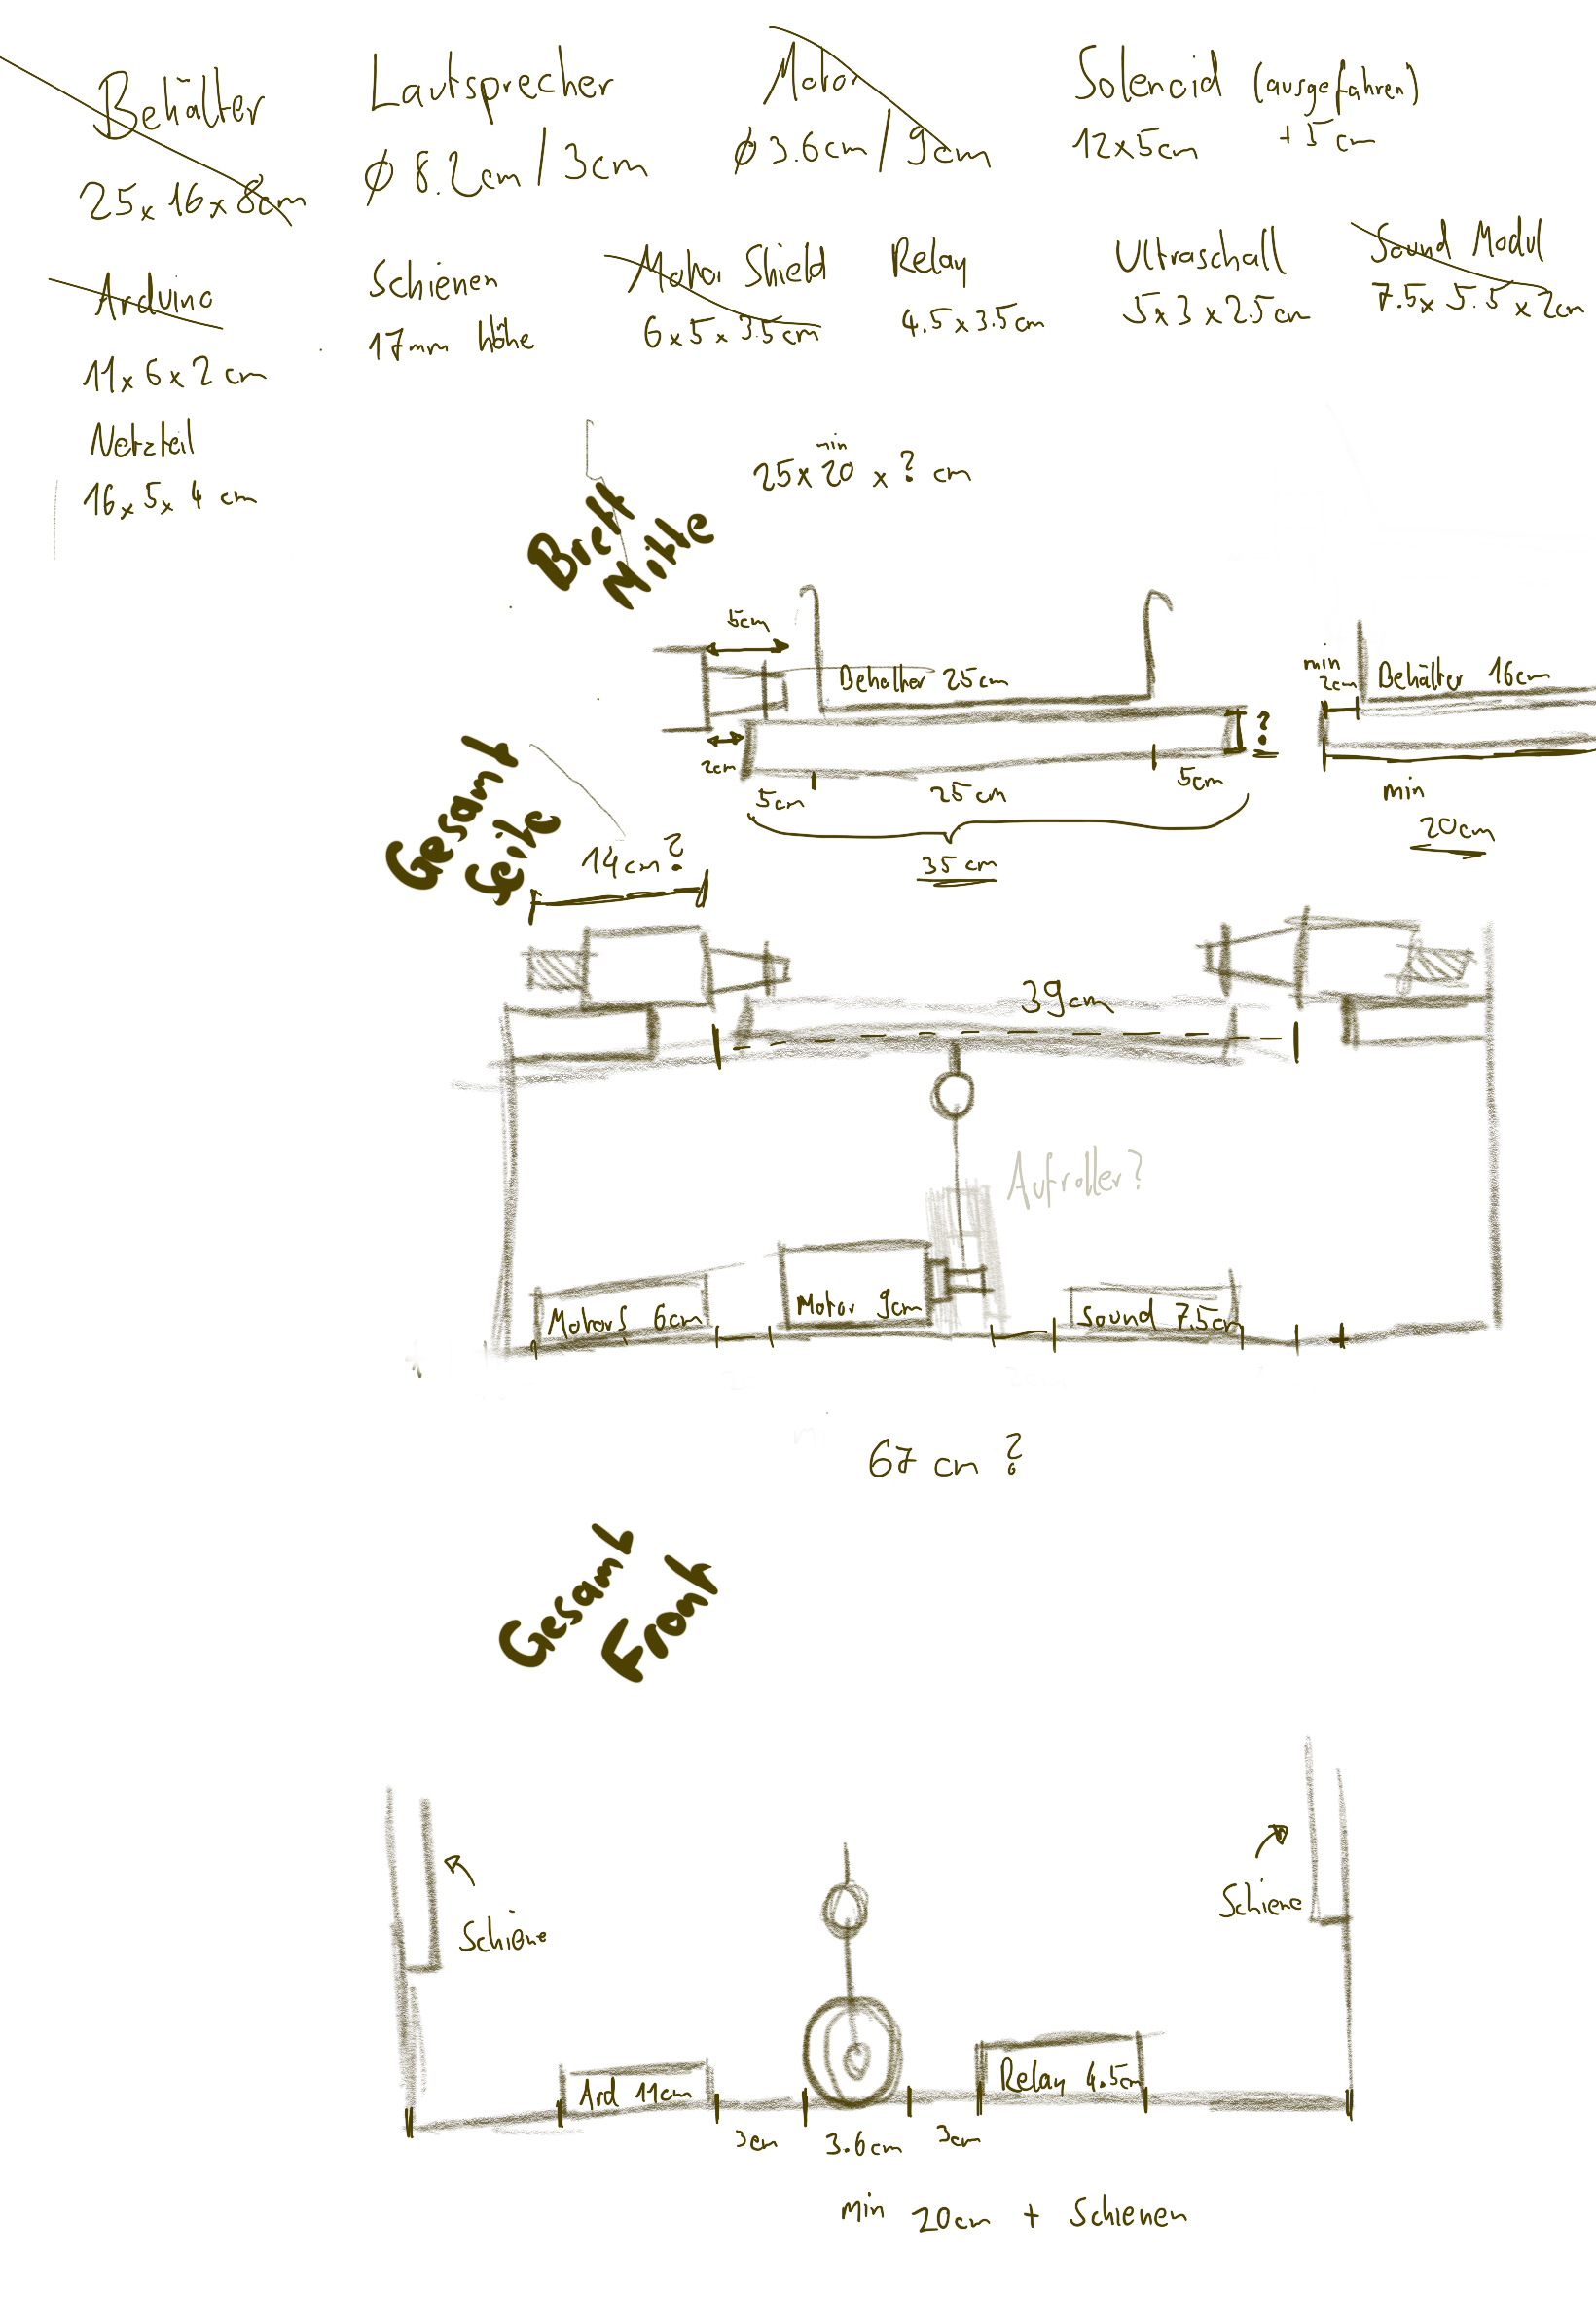 Behälter
25 x 16 x 8cm
Lautsprecher
Ø 8.2cm / 3cm
Motor
Ø 3.6cm / 9cm
Solenoid (ausgefahren)
12x5cm +5 cm
Arduino
11 x 6 x 2 cm
Schienen
17mm höhe
Motor Shield
6 x 5 x 3.5cm
Relay
4.5 x 3.5cm
Ultraschall
5x3 x 2.5cm
Sound Modul
7.5x 5.5 x 2cm
Netzteil
16 x 5 x 4 cm
Brett
Mitte
min
25 x 20 x ? cm
5cm
Behälter 25cm
?
2cm
5cm
25cm
5cm
35 cm
min
2cm
Behälter 16cm
min
20cm
Gesamt
Seite
14cm?
39cm
Aufroller?
MotorS 6cm
Motor 9cm
Sound 7.5cm
67 cm ?
Gesamt
Front
Schiene
Schiene
Ard 11cm
Relay 4.5cm
3cm
3.6cm
3cm
min 20cm + Schienen